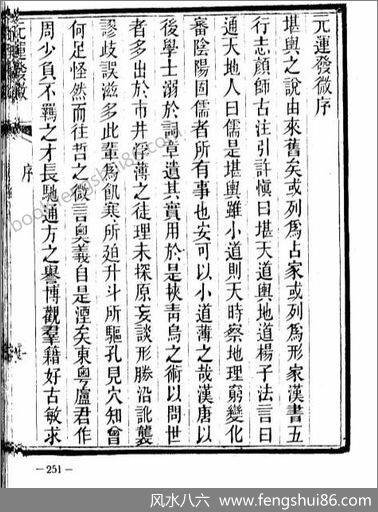 元運發微序
堪輿之說由來舊矣或列爲占家或列爲形家漢書五
行志顏師古注引許愼曰堪天道輿地道楊子法言曰
通天地人曰儒是堪輿雖小道則天時察地理窮變化
審陰陽固儒者所有事也安可以小道薄之哉漢唐以
後學士溺於詞章遺其實用於是挾靑烏之術以問世
者多出於市井淺薄之徒理未探原妄談形勝沿訛襲
謬歧誤滋多此輩爲飢寒所迫升斗所驅孔見穴知曾
何足怪然而往哲之微言奧義自是湮矣東粵廬君作
周少負不羈之才長馳通方之譽博觀羣籍好古敏求
元運發微
序
—251—
book.fengshui86.com
风水八六 - www.fengshui86.com